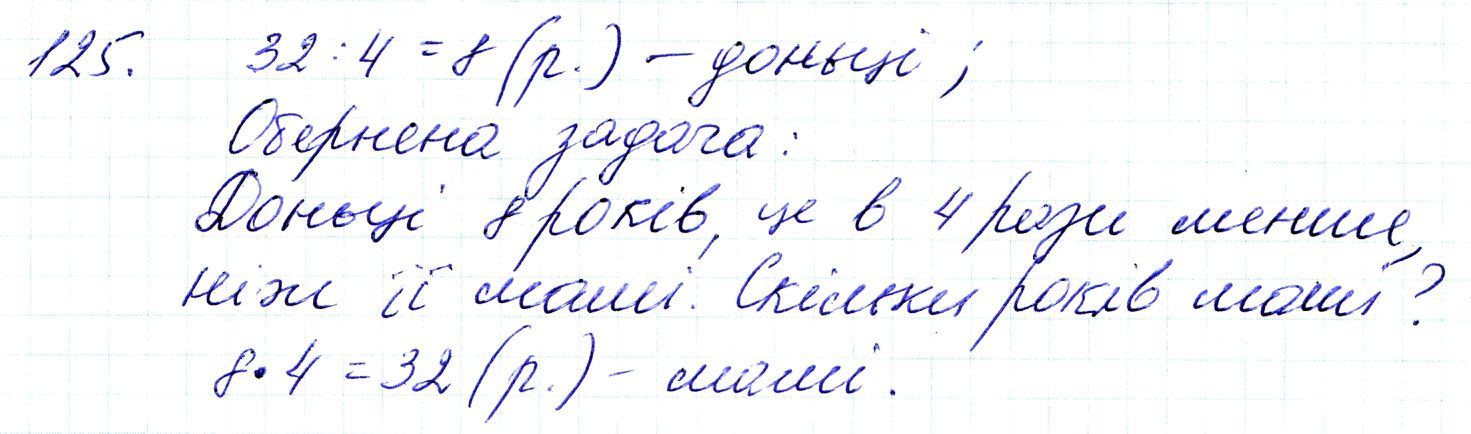 125. 32 : 4 = 8 (р.) – доньці ;
Обернена задача:
Доньці 8 років, це в 4 рази менше,
ніж її мамі. Скільки років мамі?
8 • 4 = 32 (р.) – мамі.